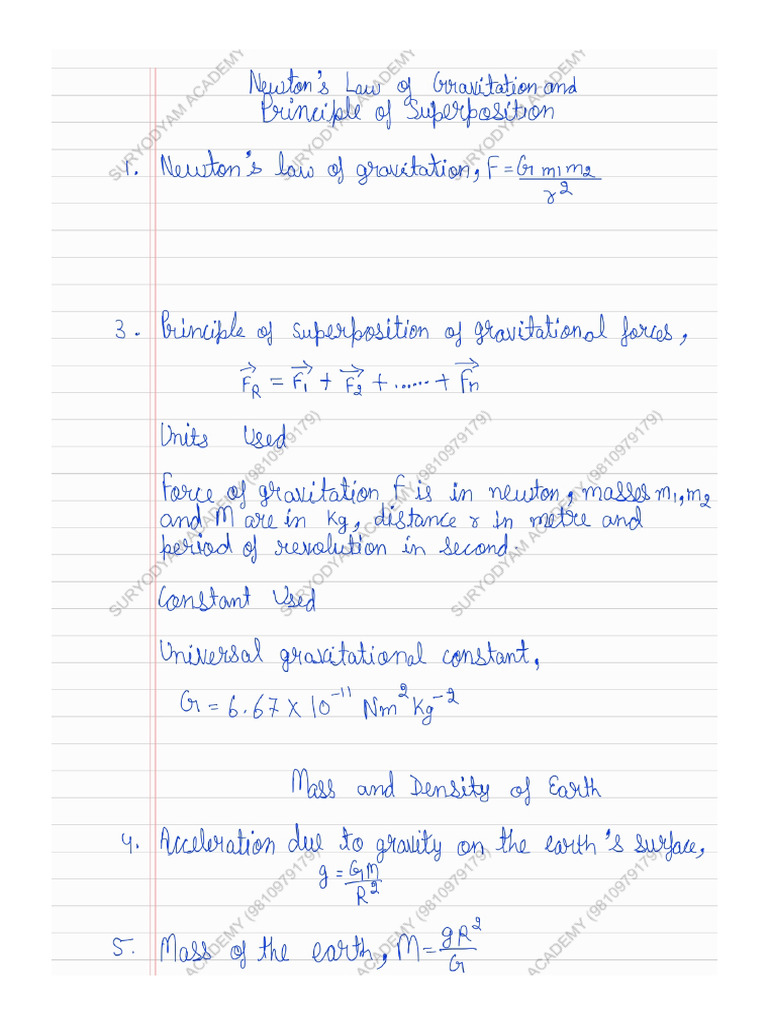 Newton's Law of Gravitation and
Principle of Superposition
1. Newton's law of gravitation, F = G m1 m2 / r²
3. Principle of superposition of gravitational forces,
F⃗R = F⃗1 + F⃗2 + ...... + F⃗n
Units Used
Force of gravitation F is in newton, masses m1, m2
and M are in kg, distance r in metre and
period of revolution in second.
Constant Used
Universal gravitational constant,
G = 6.67 × 10⁻¹¹ Nm² Kg⁻²
Mass and Density of Earth
4. Acceleration due to gravity on the earth's surface,
g = GM / R²
5. Mass of the earth, M = gR² / G
SURYODYAM ACADEMY
SURYODYAM ACADEMY
SURYODYAM ACADEMY
SURYODYAM ACADEMY (9810979179)
SURYODYAM ACADEMY (9810979179)
SURYODYAM ACADEMY (9810979179)
ACADEMY (9810979179)
ACADEMY (9810979179)
ACADEMY (9810979179)